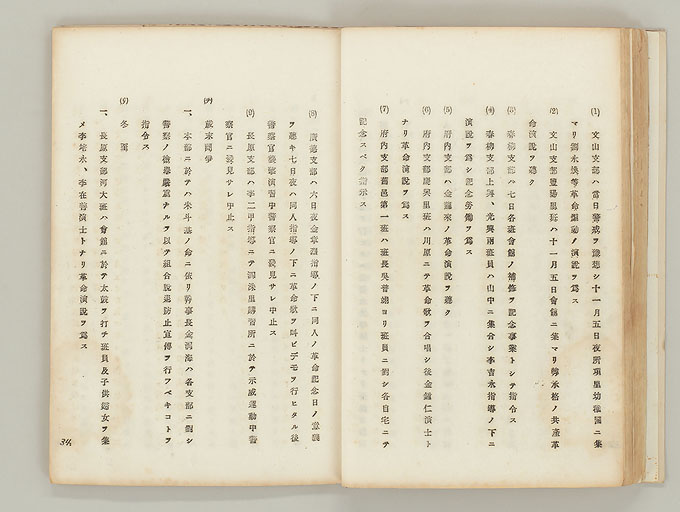 (1) 文山支部ハ當日警戒ヲ豫想シ十一月五日夜所項里幼稚園ニ集
マリ劉永煥等革命運動ノ演説ヲ爲ス
(2) 文山支部豐陽里班ハ十一月五日會館ニ集マリ韓承格ノ共產革
命演説ヲ聽ク
(3) 春柳支部ハ七日各班會館ノ補修ヲ記念事業トシテ指令ス
(4) 春柳支部上興、光興兩班員ハ山中ニ集合シ李吉永指導ノ下ニ
演説ヲ爲シ記念勞働ヲ爲ス
(5) 府內支部ハ金麗水ノ革命演説ヲ聽ク
(6) 府內支部慶興里班ハ川原ニテ革命歌ヲ合唱シ後金鍾仁演士ト
ナリ革命演説ヲ爲ス
(7) 府內支部舊邑第一班ハ班長吳普鍾ヨリ班員ニ對シ各自宅ニテ
記念スベク指示ス
(8) 支部ハ六日夜金章鎬指導ノ下ニ同人ノ革命記念日ノ意義
ヲ聽キ七日夜ハ同人指導ノ下ニ革命歌ヲ叫ビデモヲ行ヒタル後
警察官襲擊演習中警察官ニ發見サレ中止ス
(9) 長原支部ハ李二甲指導ニテ洞洙里講習所ニ於テ示威運動中警
察官ニ發見サレ中止ス
(ヲ) 歲末鬪爭
一、本部ニ於テハ朴斗基ノ命ニ依リ幹事長金河海ハ各支部ニ對シ
警察ノ檢擧嚴重ナルヲ以テ組合脫退防止宣傳ヲ行フベキコトヲ
指令ス
冬國
一、長原支部河大班ハ會館ニ於テ太鼓ヲ打チ班員及子供婦女ヲ集
メ李培永、李在善演士トナリ革命演説ヲ爲ス
34